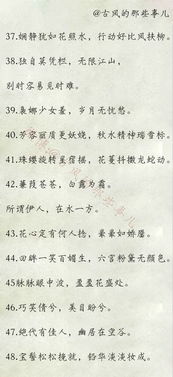 @古风的那些事儿
37.娴静犹如花照水，行动好比风扶柳。
38.独自莫凭栏，无限江山，
别时容易见时难。
39.袅娜少女羞，岁月无忧愁。
40.芳容丽质更妖娆，秋水精神瑞雪标。
41.珠缨旋转星宿摇，花蔓抖擞龙蛇动。
42.蒹葭苍苍，白露为霜。
所谓伊人，在水一方。
43.花心定有何人捻，晕晕如娇靥。
44.回眸一笑百媚生，六宫粉黛无颜色。
45脉脉眼中波，盈盈花盛处。
46.巧笑倩兮，美目盼兮。
47.绝代有佳人，幽居在空谷。
48.宝髻松松挽就，铅华淡淡妆成。